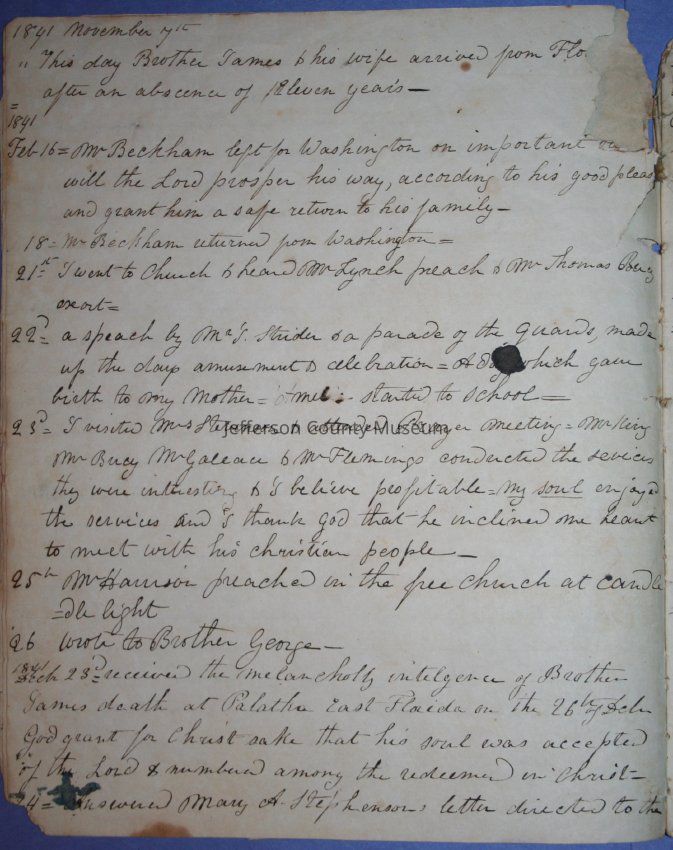 1841 November 7th
" This day Brother James & his wife arrived from Flo
after an abscence of Eleven years —
=
1841
Feb 16 = Mr Beckham left for Washington on important
will the Lord prosper his way, according to his good pleas
and grant him a safe return to his family —
18 = Mr Beckham returned from Washington =
21st = I went to Church & heard Mr Lynch preach & Mr Thomas
exort =
22d = a speach by Mr J. Strider & a parade of the Guards, made
up the days amusement & celebration = A day which gave
birth to my Mother = started to school =
23d = I visited Mrs & attended Prayer meeting = Mr King
Mr Bucy McGaleace & Mr Flemings conducted the sevices
they were interesting & I believe profitable — my soul enjoyed
the services and I thank God that he inclined me heart
to meet with his christian people —
25th Mr Harrison preached in the free church at candle
=dle light
26 wrote to Brother George —
1841
23d = received the melancholy intelgence of Brother
James death at Palatka East Flaida on the 26th of
God grant for Christ sake that his soul was accepted
of the Lord & numbered among the redeemed in Christ =
24 = Answered Mary A. Stephensons letter directed to the
Jefferson County Museum